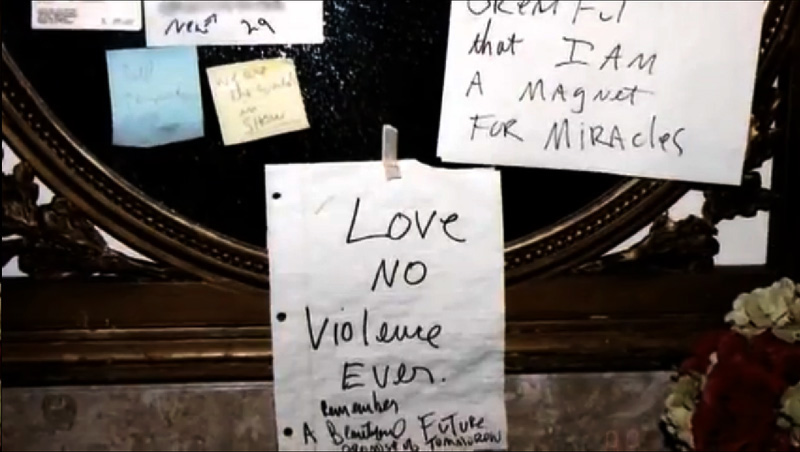 New 29
we are
the world
no
SHOW
GRATEFUL
that I AM
A MAgnet
FOR MiRAcles
Love
NO
Violence
Ever.
Remember
A Beautiful FUTURE
promise of TOMMOROW